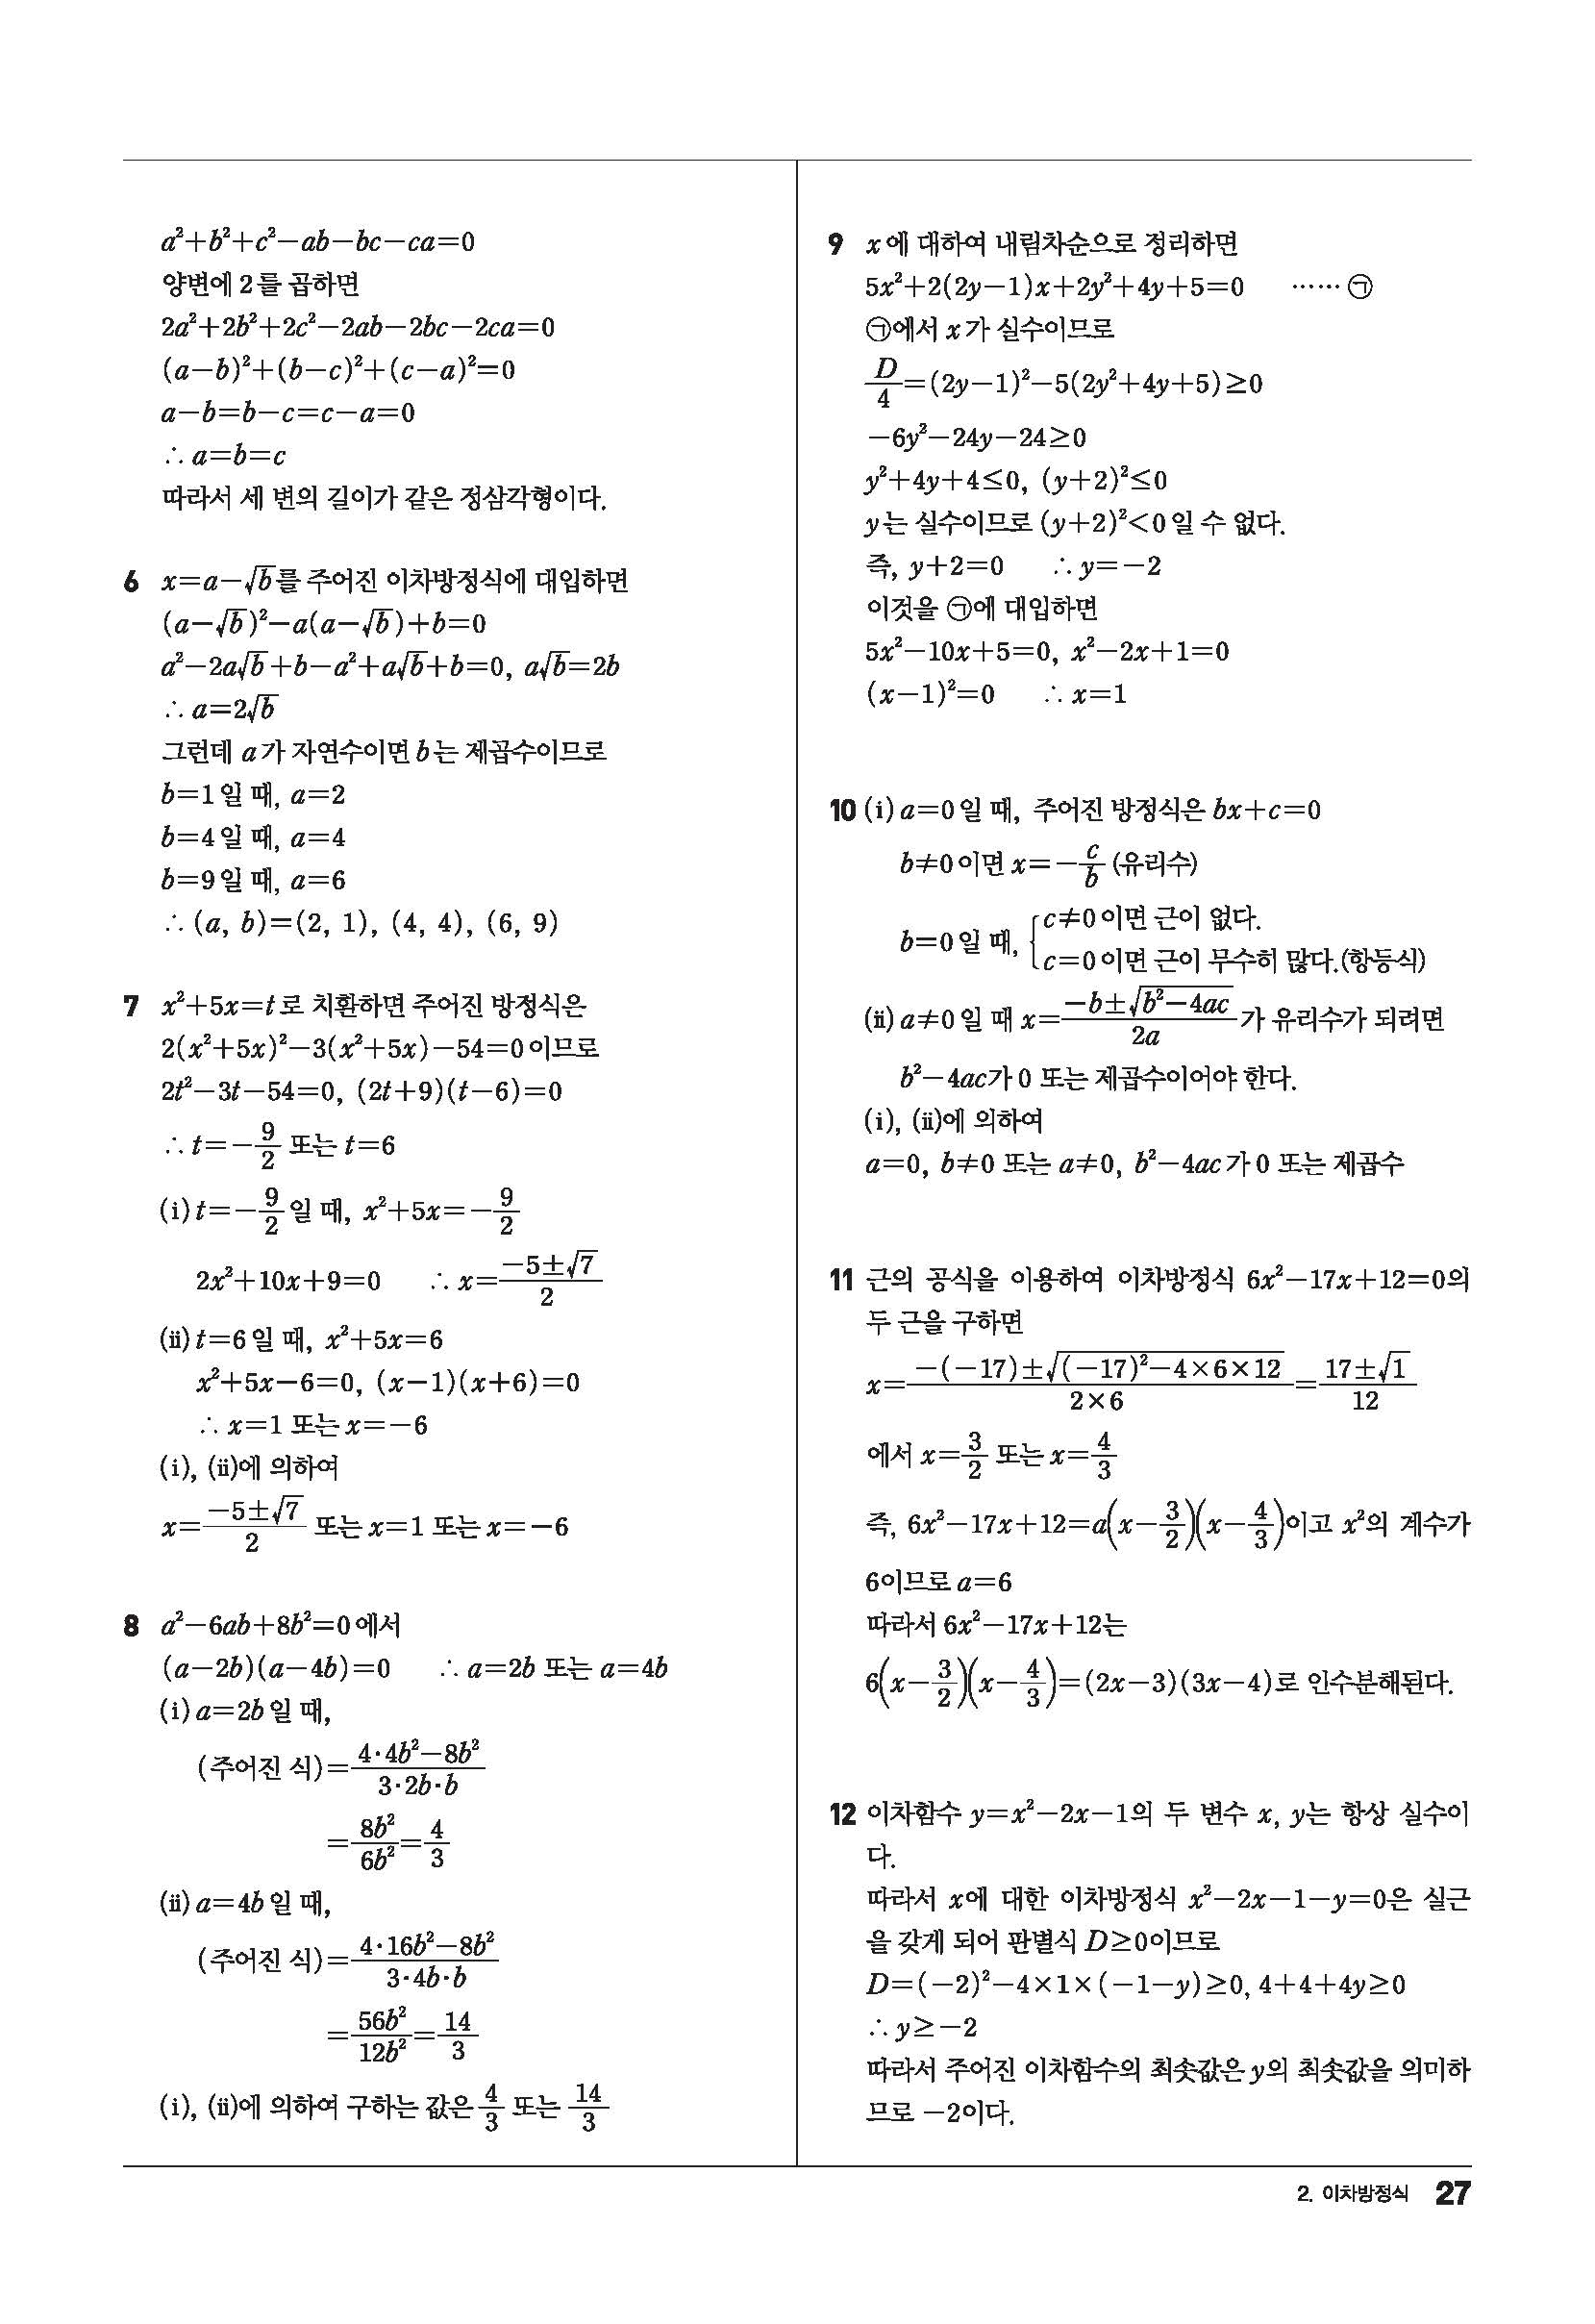 a²+b²+c²-ab-bc-ca=0
양변에 2를 곱하면
2a²+2b²+2c²-2ab-2bc-2ca=0
(a-b)²+(b-c)²+(c-a)²=0
a-b=b-c=c-a=0
∴ a=b=c
따라서 세 변의 길이가 같은 정삼각형이다.
6 x=a-√b를 주어진 이차방정식에 대입하면
(a-√b)²-a(a-√b)+b=0
a²-2a√b+b-a²+a√b+b=0, a√b=2b
∴ a=2√b
그런데 a가 자연수이면 b는 제곱수이므로
b=1일 때, a=2
b=4일 때, a=4
b=9일 때, a=6
∴ (a, b)=(2, 1), (4, 4), (6, 9)
7 x²+5x=t로 치환하면 주어진 방정식은
2(x²+5x)²-3(x²+5x)-54=0이므로
2t²-3t-54=0, (2t+9)(t-6)=0
∴ t=-9/2 또는 t=6
(ⅰ) t=-9/2일 때, x²+5x=-9/2
2x²+10x+9=0 ∴ x=(-5±√7)/2
(ⅱ) t=6일 때, x²+5x=6
x²+5x-6=0, (x-1)(x+6)=0
∴ x=1 또는 x=-6
(ⅰ), (ⅱ)에 의하여
x=(-5±√7)/2 또는 x=1 또는 x=-6
8 a²-6ab+8b²=0에서
(a-2b)(a-4b)=0 ∴ a=2b 또는 a=4b
(ⅰ) a=2b일 때,
(주어진 식)=(4·4b²-8b²)/(3·2b·b)
=8b²/6b²=4/3
(ⅱ) a=4b일 때,
(주어진 식)=(4·16b²-8b²)/(3·4b·b)
=56b²/12b²=14/3
(ⅰ), (ⅱ)에 의하여 구하는 값은 4/3 또는 14/3
9 x에 대하여 내림차순으로 정리하면
5x²+2(2y-1)x+2y²+4y+5=0 ……㉠
㉠에서 x가 실수이므로
D/4=(2y-1)²-5(2y²+4y+5)≥0
-6y²-24y-24≥0
y²+4y+4≤0, (y+2)²≤0
y는 실수이므로 (y+2)²<0일 수 없다.
즉, y+2=0 ∴ y=-2
이것을 ㉠에 대입하면
5x²-10x+5=0, x²-2x+1=0
(x-1)²=0 ∴ x=1
10 (ⅰ) a=0일 때, 주어진 방정식은 bx+c=0
b≠0이면 x=-c/b (유리수)
b=0일 때, { c≠0이면 근이 없다.
c=0이면 근이 무수히 많다.(항등식)
(ⅱ) a≠0일 때 x=(-b±√(b²-4ac))/2a가 유리수가 되려면
b²-4ac가 0 또는 제곱수이어야 한다.
(ⅰ), (ⅱ)에 의하여
a=0, b≠0 또는 a≠0, b²-4ac가 0 또는 제곱수
11 근의 공식을 이용하여 이차방정식 6x²-17x+12=0의
두 근을 구하면
x=(-(-17)±√((-17)²-4×6×12))/(2×6)=(17±√1)/12
에서 x=3/2 또는 x=4/3
즉, 6x²-17x+12=a(x-3/2)(x-4/3)이고 x²의 계수가
6이므로 a=6
따라서 6x²-17x+12는
6(x-3/2)(x-4/3)=(2x-3)(3x-4)로 인수분해된다.
12 이차함수 y=x²-2x-1의 두 변수 x, y는 항상 실수이
다.
따라서 x에 대한 이차방정식 x²-2x-1-y=0은 실근
을 갖게 되어 판별식 D≥0이므로
D=(-2)²-4×1×(-1-y)≥0, 4+4+4y≥0
∴ y≥-2
따라서 주어진 이차함수의 최솟값은 y의 최솟값을 의미하
므로 -2이다.
2. 이차방정식 27